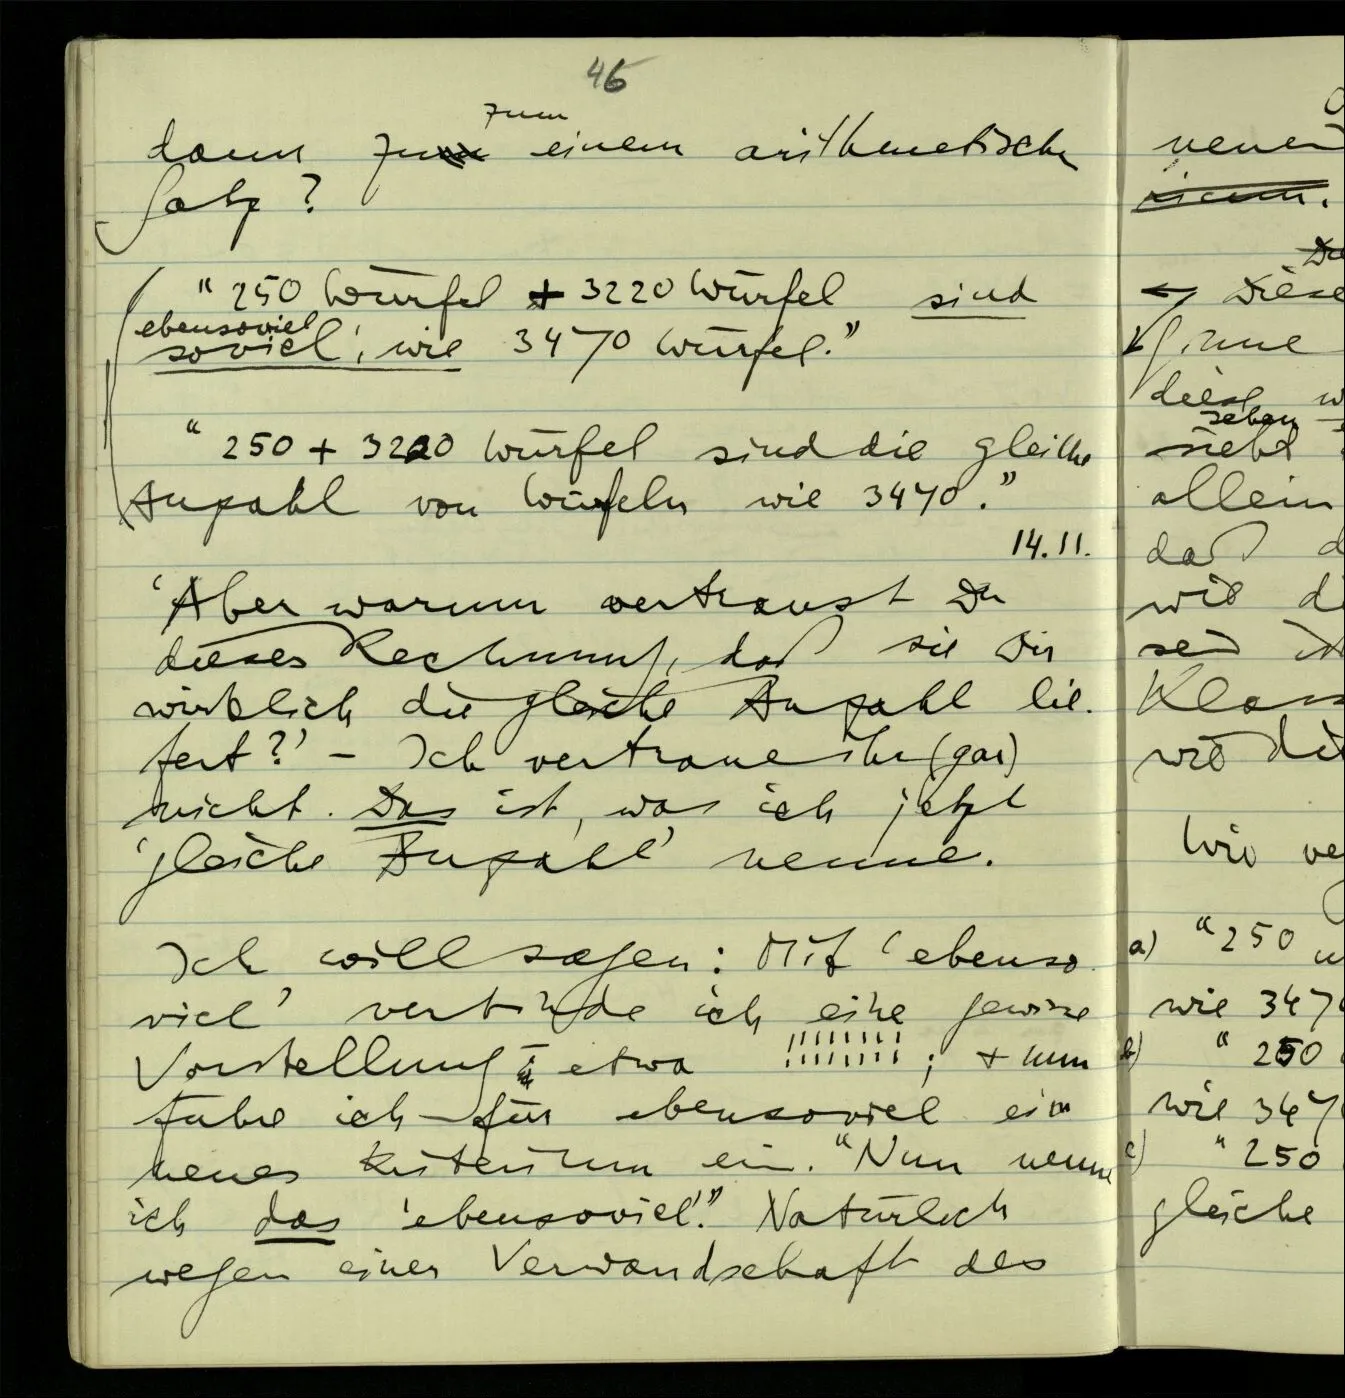 46
zum
dann zum einem arithmetischen
Satz?
"250 Würfel + 3220 Würfel sind
ebensoviel
soviel, wie 3470 Würfel."
"250 + 3220 Würfel sind die gleiche
Anzahl von Würfeln wie 3470."
14.11.
'Aber warum vertraust Du
dieser Rechnung, daß sie Dir
wirklich die gleiche Anzahl lie-
fert?' – Ich vertraue ihr (gar)
nicht. Das ist, was ich jetzt
'gleiche Anzahl' nenne.
Ich will sagen: Mit 'ebenso-
viel' verbinde ich eine gewisse
Vorstellung etwa ; + nun
führe ich für ebensoviel ein
neues Kriterium ein. "Nun nenne
ich das 'ebensoviel'." Natürlich
wegen einer Verwandschaft des
neuen
Diese
Sinne
diese
sehen
sieht
allein
daß
wie
sei
wie die
Wir
a) "250
wie 347
b) "250
wie 347
c) "250
gleiche